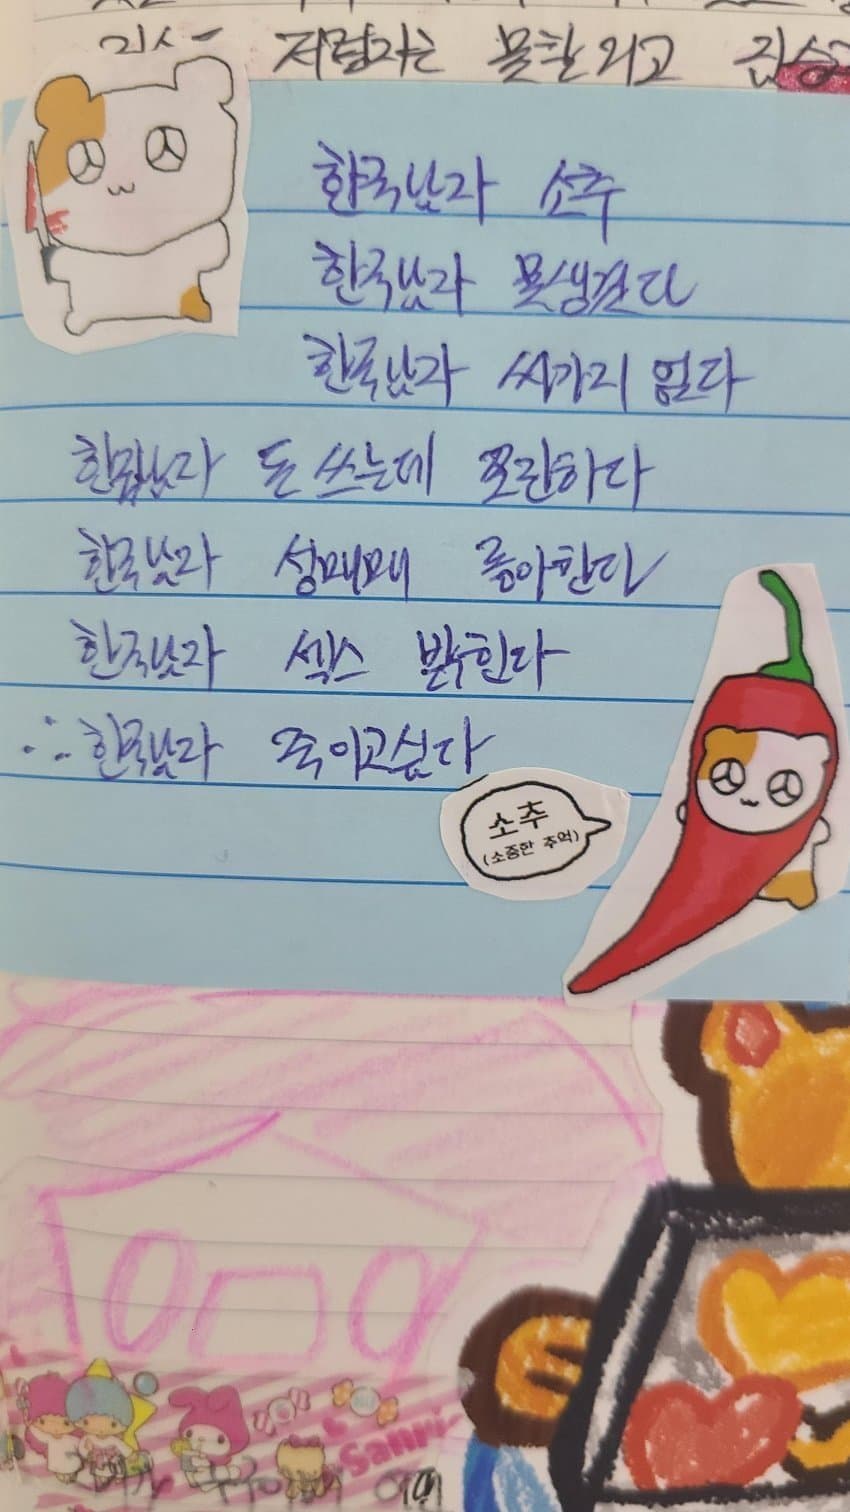 저럴자는 못할 외고
한국남자 소추
한국남자 못생겼다
한국남자 싸가지 없다
한국남자 돈 쓰는데 쪼잔하다
한국남자 성매매 좋아한다
한국남자 섹스 밝힌다
∴ 한국남자 죽이고싶다
소추
(소중한 추억)
Sanri